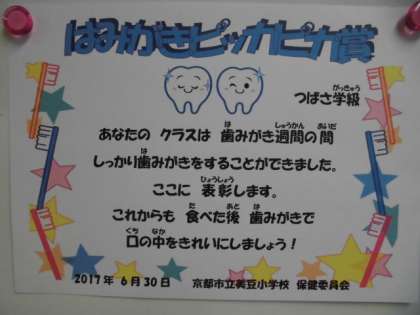 はみがきピッカピカ賞
つばさ学級
あなたの クラスは 歯みがき週間の間
しっかり歯みがきをすることができました。
ここに 表彰します。
これからも 食べた後 歯みがきで
口の中をきれいにしましょう！
2017年 6月30日 京都市立美豆小学校 保健委員会